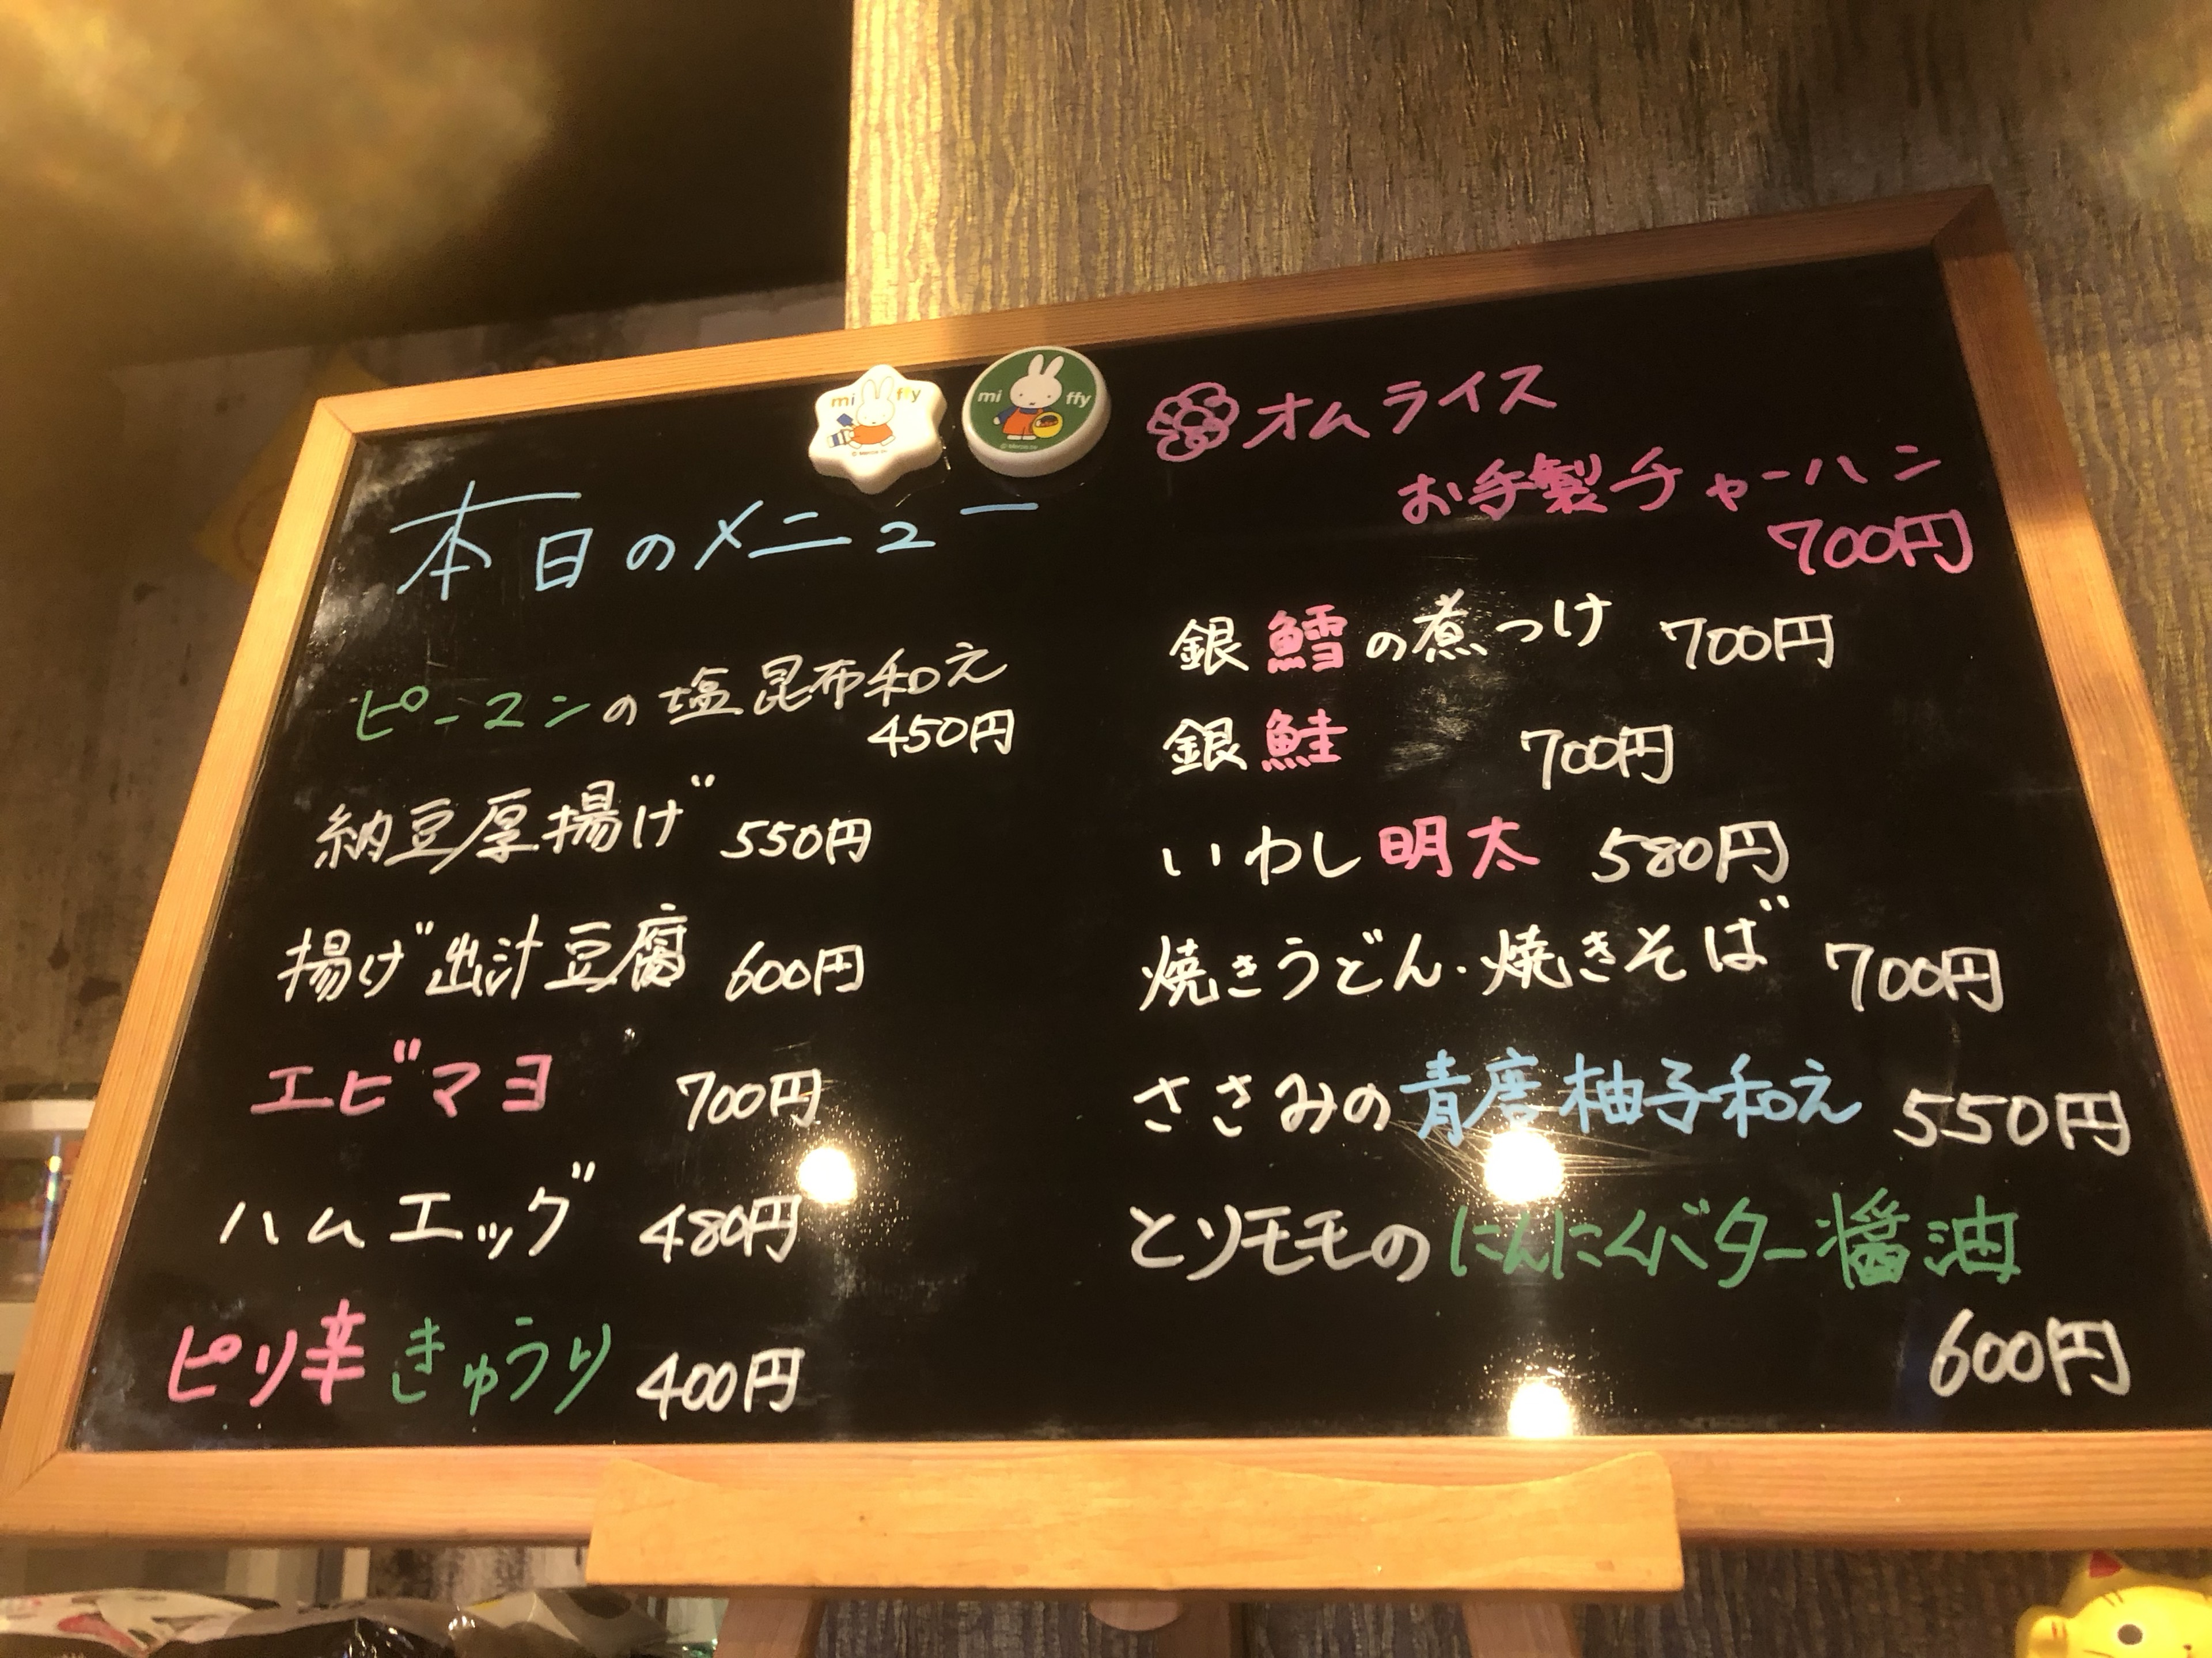 mi ffy
mi ffy
本日のメニュー
ピーマンの塩昆布和え
450円
納豆厚揚げ 550円
揚げ出汁豆腐 600円
エビマヨ 700円
ハムエッグ 480円
ピリ辛きゅうり 400円
オムライス
お手製チャーハン
700円
銀鱈の煮つけ 700円
銀鮭 700円
いわし明太 580円
焼きうどん・焼きそば 700円
ささみの青唐柚子和え 550円
とりモモのにんにくバター醤油
600円